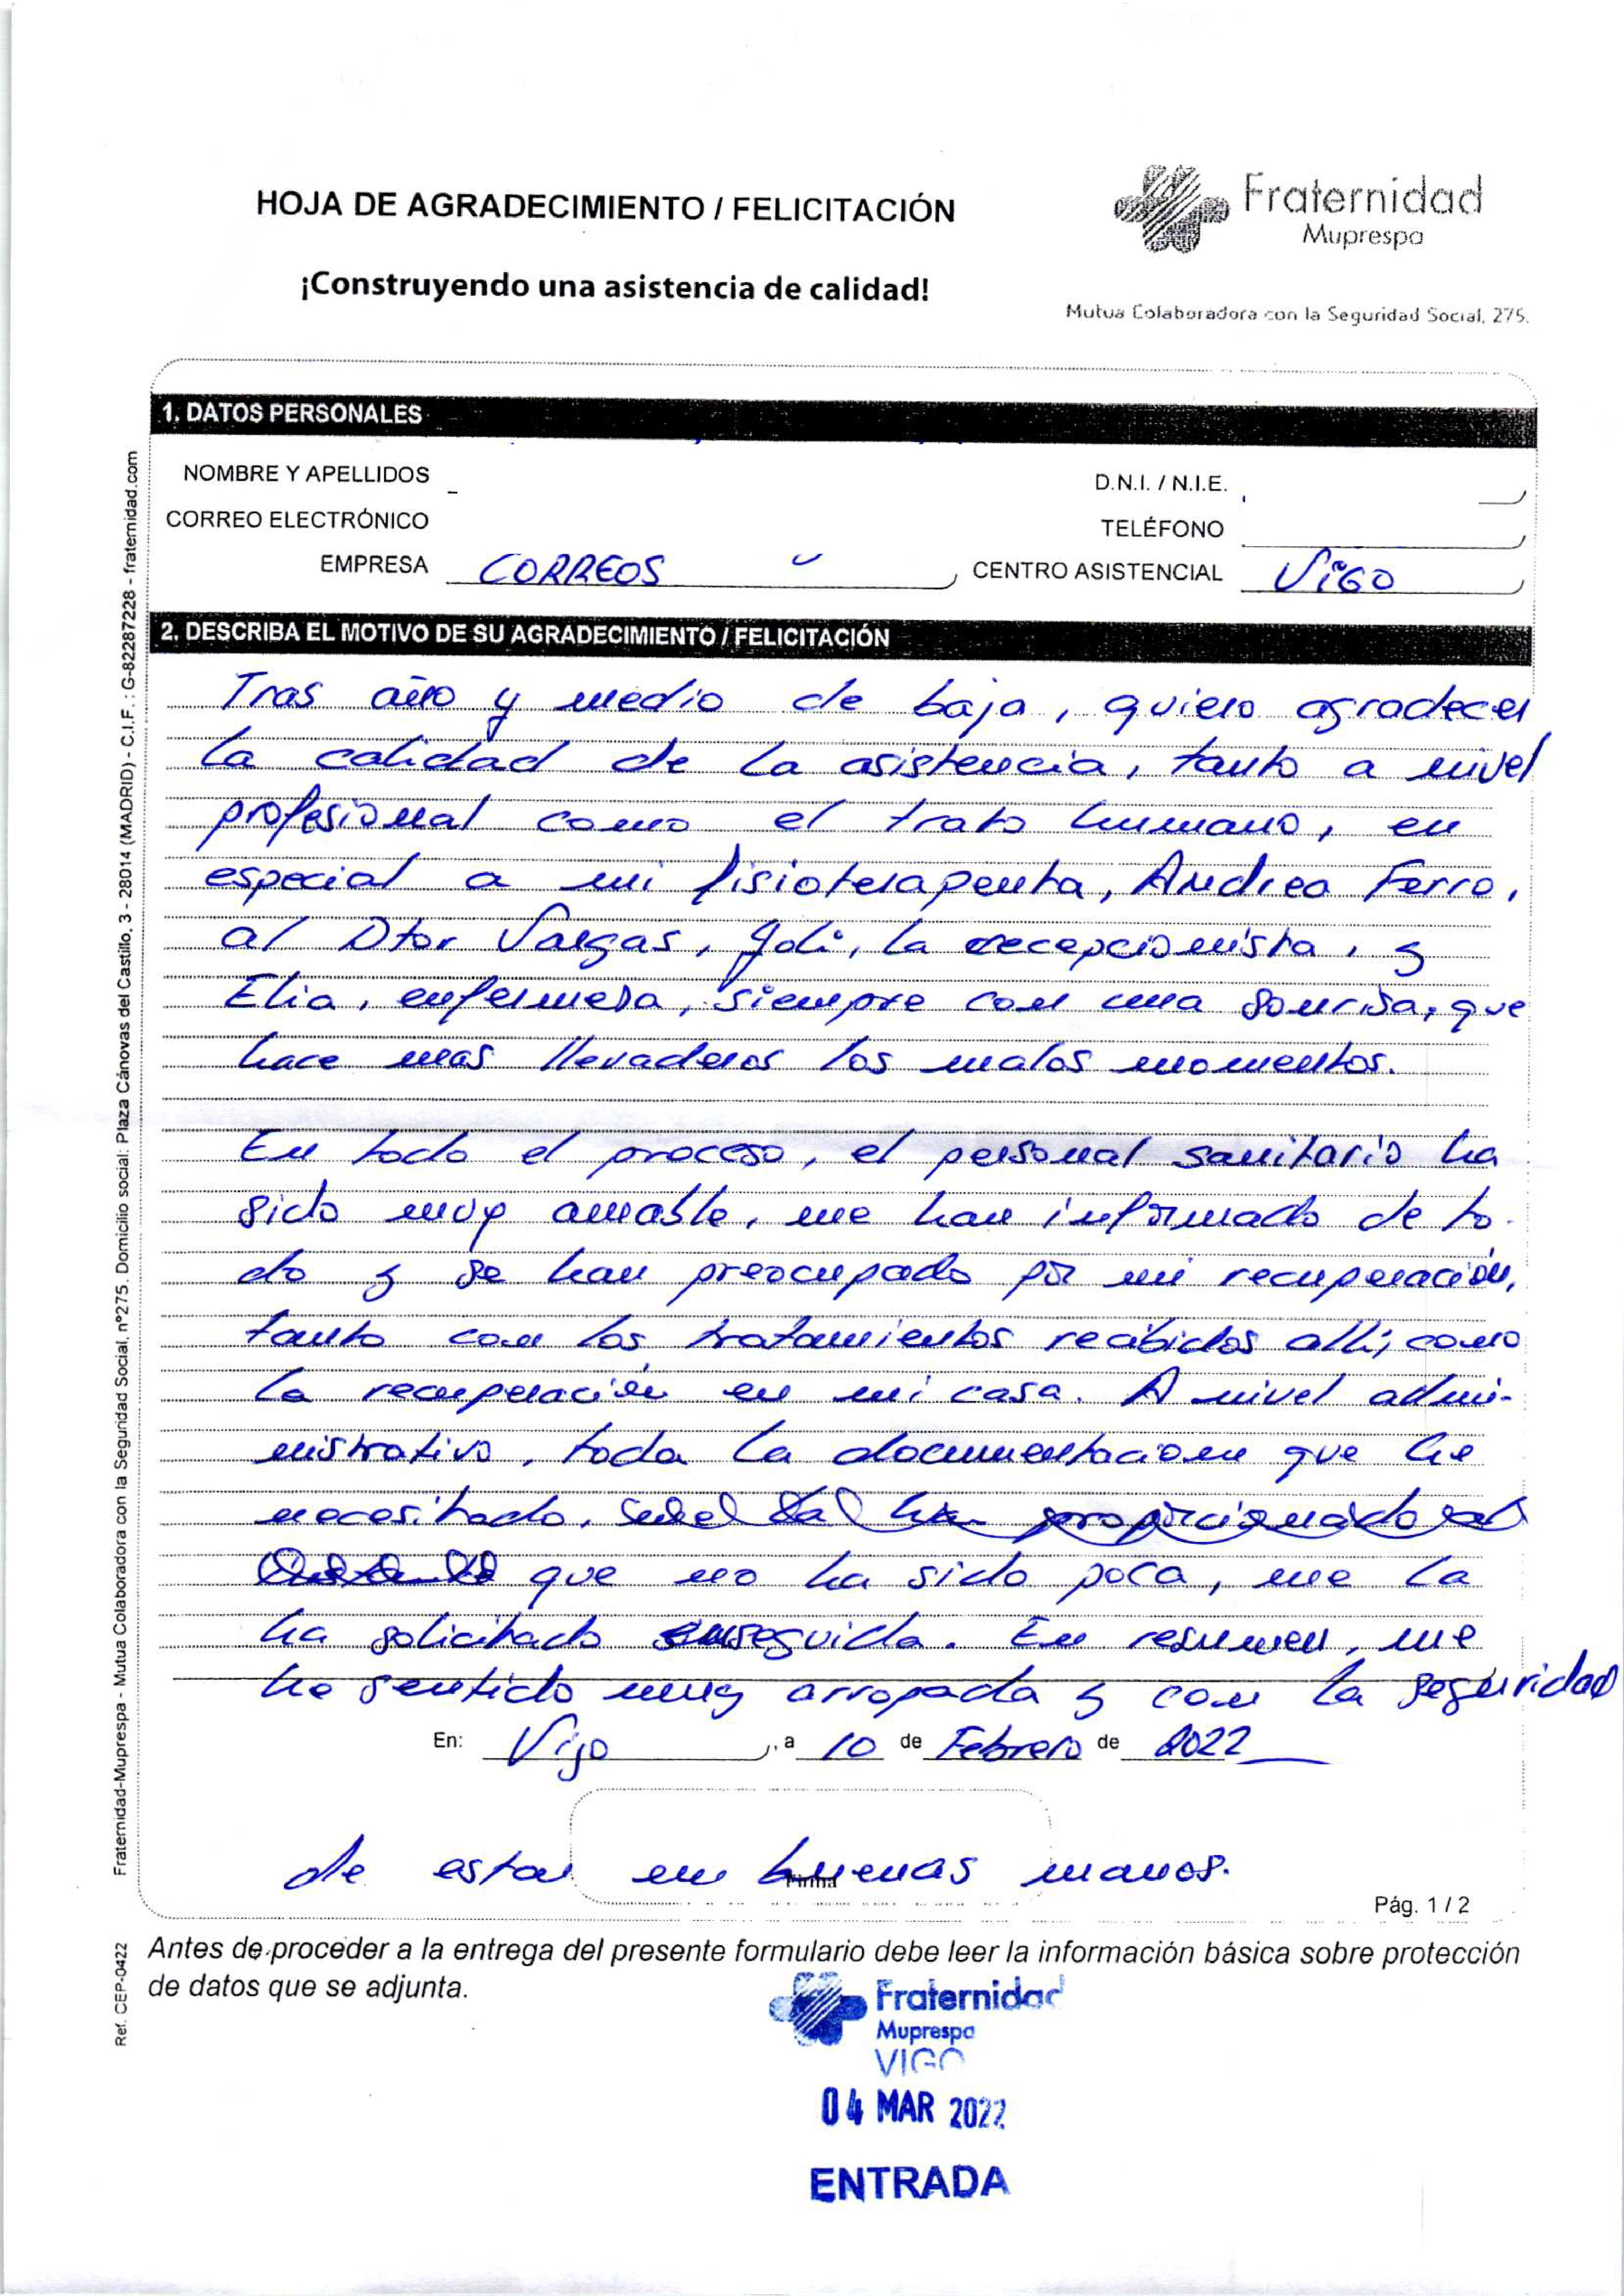 HOJA DE AGRADECIMIENTO / FELICITACIÓN
¡Construyendo una asistencia de calidad!
Fraternidad
Muprespa
Mutua Colaboradora con la Seguridad Social, 275.
1. DATOS PERSONALES
NOMBRE Y APELLIDOS
D.N.I. / N.I.E.
CORREO ELECTRÓNICO
TELÉFONO
EMPRESA CORREOS
CENTRO ASISTENCIAL VIGO
2. DESCRIBA EL MOTIVO DE SU AGRADECIMIENTO / FELICITACIÓN
Tras año y medio de baja, quiero agradecer
la calidad de la asistencia, tanto a nivel
profesional como el trato humano, en
especial a mi fisioterapeuta, Andrea Ferro,
al Dtor Vargas, la recepcionista, y
Elia, enfermera, siempre con una sonrisa, que
hace mas llevaderos los malos momentos.
En todo el proceso, el personal sanitario ha
sido muy amable, me han informado de to-
do y se han preocupado por mi recuperación,
tanto con los tratamientos recibidos allí, como
la recuperación en mi casa. A nivel admi-
nistrativo, toda la documentacion que he
necesitado, proporcionado
que no ha sido poca, me la
ha solicitado enseguida. En resumen, me
he sentido muy arropada y con la seguridad
En: Vigo, a 10 de Febrero de 2022
de estar en buenas manos.
Firma
Pág. 1 / 2
Antes de proceder a la entrega del presente formulario debe leer la información básica sobre protección
de datos que se adjunta.
Fraternidad
Muprespa
VIGO
04 MAR 2022
ENTRADA
Fraternidad-Muprespa - Mutua Colaboradora con la Seguridad Social, nº275. Domicilio social: Plaza Cánovas del Castillo, 3 - 28014 (MADRID) - C.I.F. : G-82287228 - fraternidad.com
Ref. CEP-0422